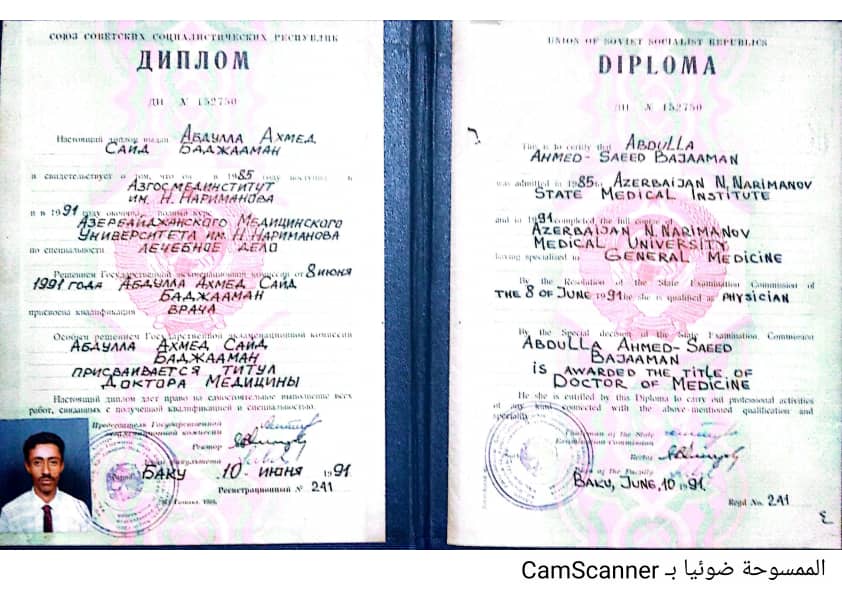 СОЮЗ СОВЕТСКИХ СОЦИАЛИСТИЧЕСКИХ РЕСПУБЛИК
ДИПЛОМ
ДИ № 152750
Настоящий диплом выдан АБДУЛЛА АХМЕД
САИД БАДЖААМАН
в свидетельствует о том, что он в 1985 году поступил в
АЗГОСМЕДИНСТИТУТ
ИМ. Н. НАРИМАНОВА
и в 1991 году окончил полный курс
АЗЕРБАЙДЖАНСКОГО МЕДИЦИНСКОГО
УНИВЕРСИТЕТА ИМ. Н. НАРИМАНОВА
по специальности ЛЕЧЕБНОЕ ДЕЛО
Решением Государственной экзаменационной комиссии от 8 ИЮНЯ
1991 ГОДА АБДУЛЛА АХМЕД САИД
БАДЖААМАН
присвоена квалификация ВРАЧА
Особым решением Государственной экзаменационной комиссии
АБДУЛЛА АХМЕД САИД
БАДЖААМАН
ПРИСВАИВАЕТСЯ ТИТУЛ
ДОКТОРА МЕДИЦИНЫ
Настоящий диплом дает право на самостоятельное выполнение всех
работ, связанных с полученной квалификацией и специальностью.
Председатель Государственной
экзаменационной комиссии
Ректор
БАКУ 10 ИЮНЯ 1991
Регистрационный № 241
UNION OF SOVIET SOCIALIST REPUBLICS
DIPLOMA
ДИ № 152750
This is to certify that ABDULLA
AHMED-SAEED BAJAAMAN
was admitted in 1985 to AZERBAIJAN N. NARIMANOV
STATE MEDICAL INSTITUTE
and in 1991 completed the full course of
AZERBAIJAN N. NARIMANOV
MEDICAL UNIVERSITY
having specialized in GENERAL MEDICINE
By the Resolution of the State Examination Commission of
THE 8 OF JUNE 1991 he she is qualified as PHYSICIAN
By the Special decision of the State Examination Commission
ABDULLA AHMED-SAEED
BAJAAMAN
IS AWARDED THE TITLE OF
DOCTOR OF MEDICINE
He she is entitled by this Diploma to carry out professional activities
of any kind connected with the above-mentioned qualification and
speciality
Chairman of the State
Examination Commission
Rector
Dean of the Faculty
BAKU, JUNE, 10 1991
Regd No. 241
٤
الممسوحة ضوئيا بـ CamScanner